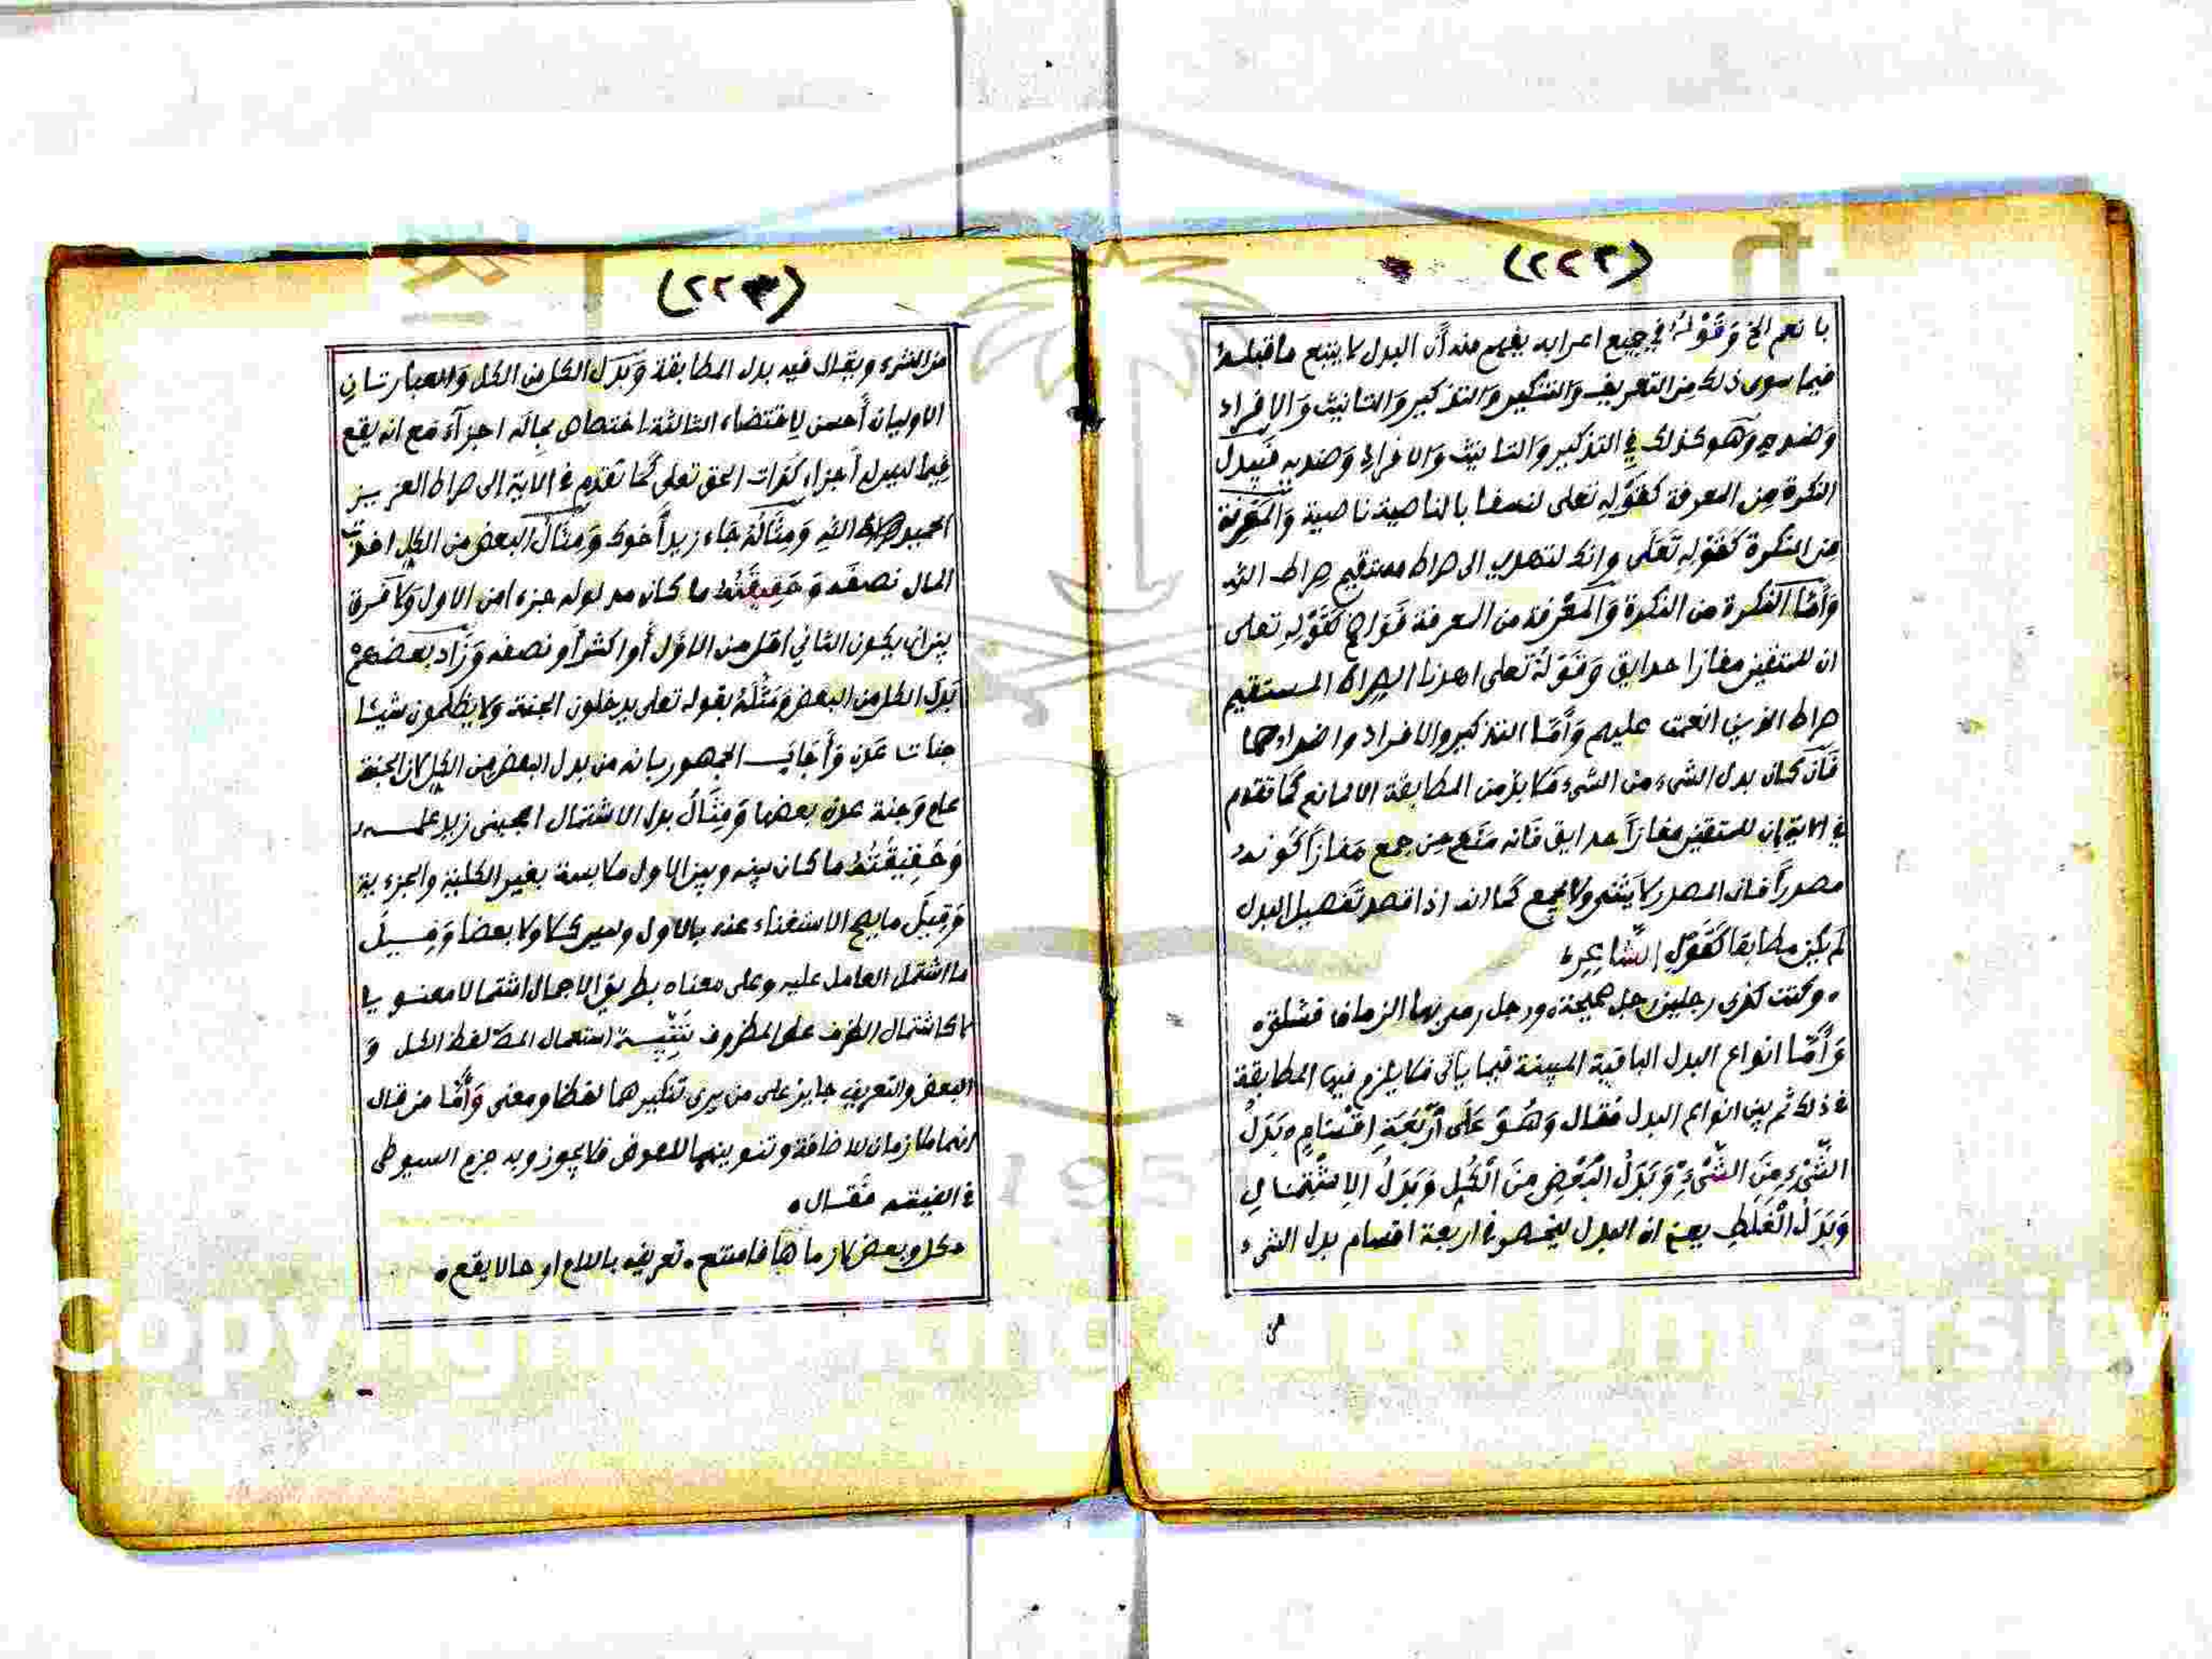 (٢٢٢)
بانعم الخ وَقَوْلُهُ في جميع اعرابه يفهم منه أن البدل لا يتبع ما قبله
فيما سوى ذلك من التعريف والتنكير والتذكير والتانيث والافراد
وضديه وهو كذلك في التذكير والتانيث والافراد وضديه فتبدل
النكرة من المعرفة كقوله تعلى لنسفعا بالناصية ناصية والمعرفة
من النكرة كقوله تَعَلَى وانك لتهدى الى صراط مستقيم صراط الله
وَأَمَّا النكرة من النكرة وَالمعرفة من المعرفة فَوَاضح كقوله تعلى
ان للمتقين مفازا حدايق وَقَوْلُهُ تعلى اهدنا الصراط المستقيم
صراط الذين انعمت عليهم وَأَمَّا التذكير والافراد واضدادهما
فَان كان بدل الشيء من الشيء فلا بد من المطابقة الا لمانع كما تقدم
في الاية ان للمتقين مفازاً حدايق فانه منع من جمع مفازاً كونه
مصدراً فان المصدر لا يثنى ولا يجمع كما انه اذا قصد تفصيل البدل
لم يكن مطابقا كَقَوْلِ الشَّاعِرِ
وكنت كذى رجلين رجل صحيحة ورجل رمى بها الزمان فشلت
وَأَمَّا انواع البدل الباقية المبينة فيما ياتى فلا يلزم فيها المطابقة
في ذلك ثم بين انواع البدل فقال وَهُوَ عَلَى أَرْبَعَةِ اقْسَامٍ بَدَلُ
الشَّيْءِ مِنَ الشَّيْءِ وَبَدَلُ الْبَعْضِ مِنَ الْكُلِّ وَبَدَلُ الِاشْتِمَالِ
وَبَدَلُ الْغَلَطِ يعني ان البدل ينحصر في اربعة اقسام بدل الشيء
من
(٢٢٣)
من الشيء ويقال فيه بدل المطابقة وَبَدَل الكل من الكل والعبارتان
الاوليان أحسن لاقتضاء الثالثة اختصاص بماله اجزآء مع انه يقع
فيما ليس له أجزاء كذات الحق تعلى كما تقدم في الاية الى صراط العزيز
الحميد الله وَمِثَالُهُ جاء زيد أخوك وَمِثَالُ البعض من الكل اخذت
المال نصفه وَحَقِيقَتُهُ ما كان مدلوله جزءا من الاول ولا فرق
بين ان يكون الثاني اقل من الاوّل أو اكثر أو نصفه وَزَاد بعضهم
بَدَل الكل من البعض وَمَثَّلَهُ بقوله تعلى يدخلون الجنة ولا يظلمون شيئا
جنات عدن وَأَجَابَ الجمهور بانه من بدل البعض من الكل لان الجنة
علم وَجنة عدن بعضها وَمِثَالُ بدل الاشتمال اعجبنى زيد علمه
وَحَقِيقَتُهُ ما كان بينه وبين الاول ملابسة بغير الكلية والجزءية
وَقِيلَ ما يصح الاستغناء عنه بالاول وليس كلا ولا بعضا وَقِيلَ
ما اشتمل العامل عليه وعلى معناه بطريق الاجمال اشتمالا معنويا
لا كاشتمال الظرف على المظروف تَنْبِيه استعمال لفظ الكل و
البعض والتعريف جايز على من يرى تنكيرهما لفظا ومعنى وَأَمَّا من قال
انهما ملازمان للاضافة وتنوينهما للعوض فلا يجوز وبه جزم السيوطى
في الفيته فقال
كل وبعض لازماها فامتنع تعريفه باللام او حالا يقع